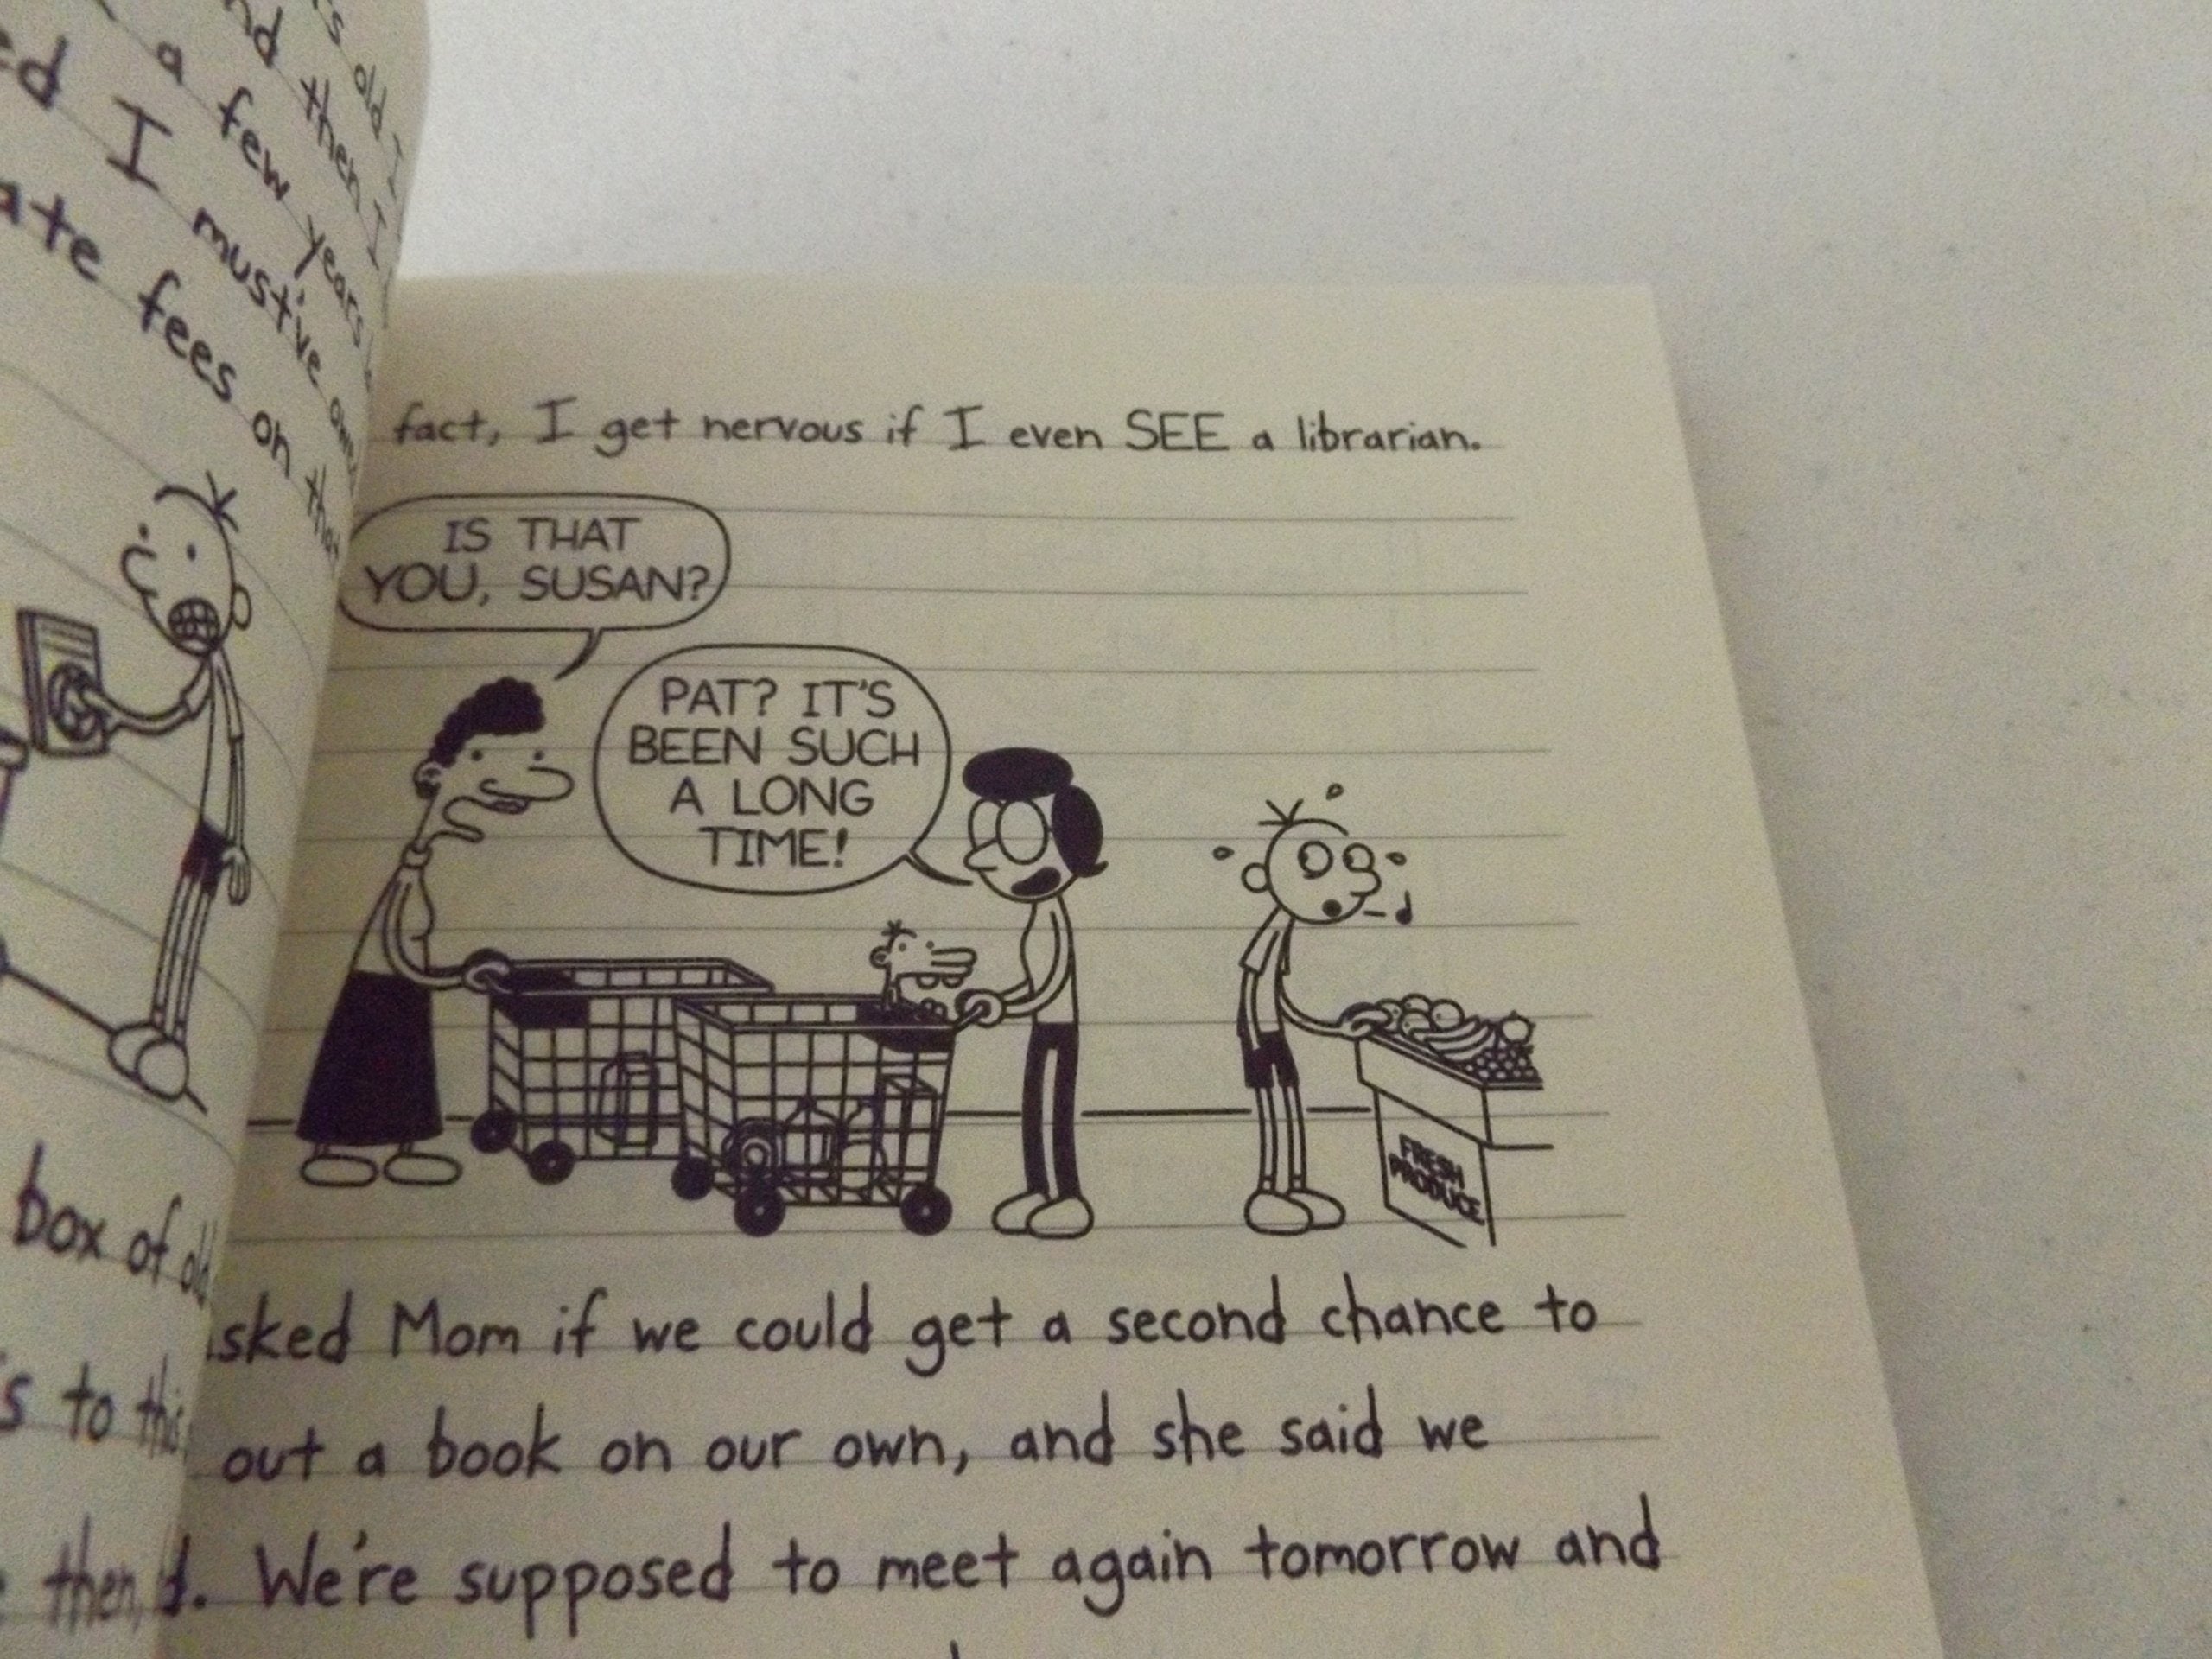 s old I
nd then I
a few years
ed I must've owe
ate fees on that
box of old
s to this
then,
fact, I get nervous if I even SEE a librarian.
IS THAT
YOU, SUSAN?
PAT? IT'S
BEEN SUCH
A LONG
TIME!
FRESH
PRODUCE
sked Mom if we could get a second chance to
out a book on our own, and she said we
d. We're supposed to meet again tomorrow and